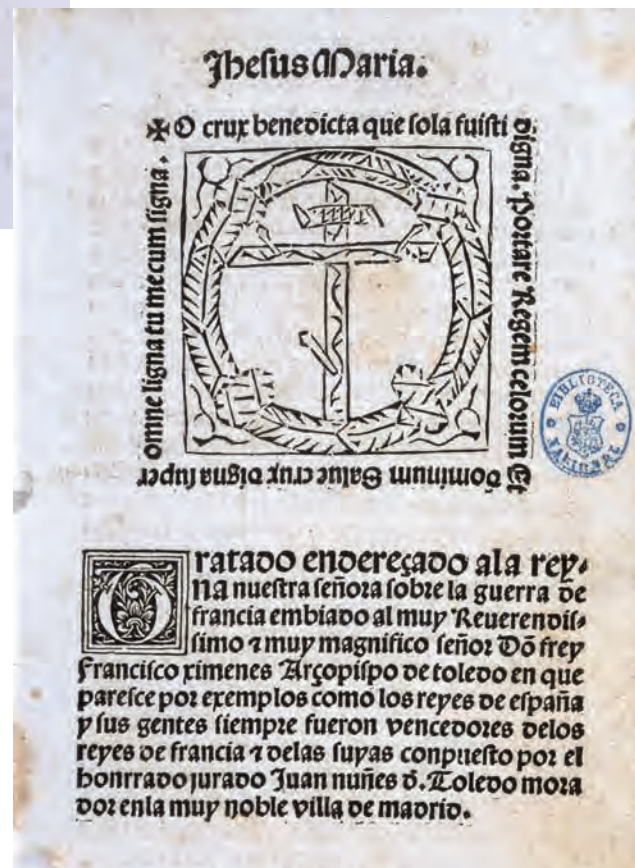 Jhesus Maria.
✠ O crux benedicta que sola fuisti
digna. Portare Regem celorum Et
Dominum Salue crux digna super
omne ligna tu mecum signa.
BIBLIOTECA NACIONAL
Tratado endereçado ala rey-
na nuestra señora sobre la guerra de
francia embiado al muy Reuerendis-
simo ⁊ muy magnifico señor Dõ frey
Francisco ximenes Arçopispo de toledo en que
paresce por exemplos como los reyes de españa
y sus gentes siempre fueron vencedores delos
reyes de francia ⁊ delas suyas conpuesto por el
honrrado jurado Juan nuñes d̕. Toledo mora
dor enla muy noble villa de madrid.